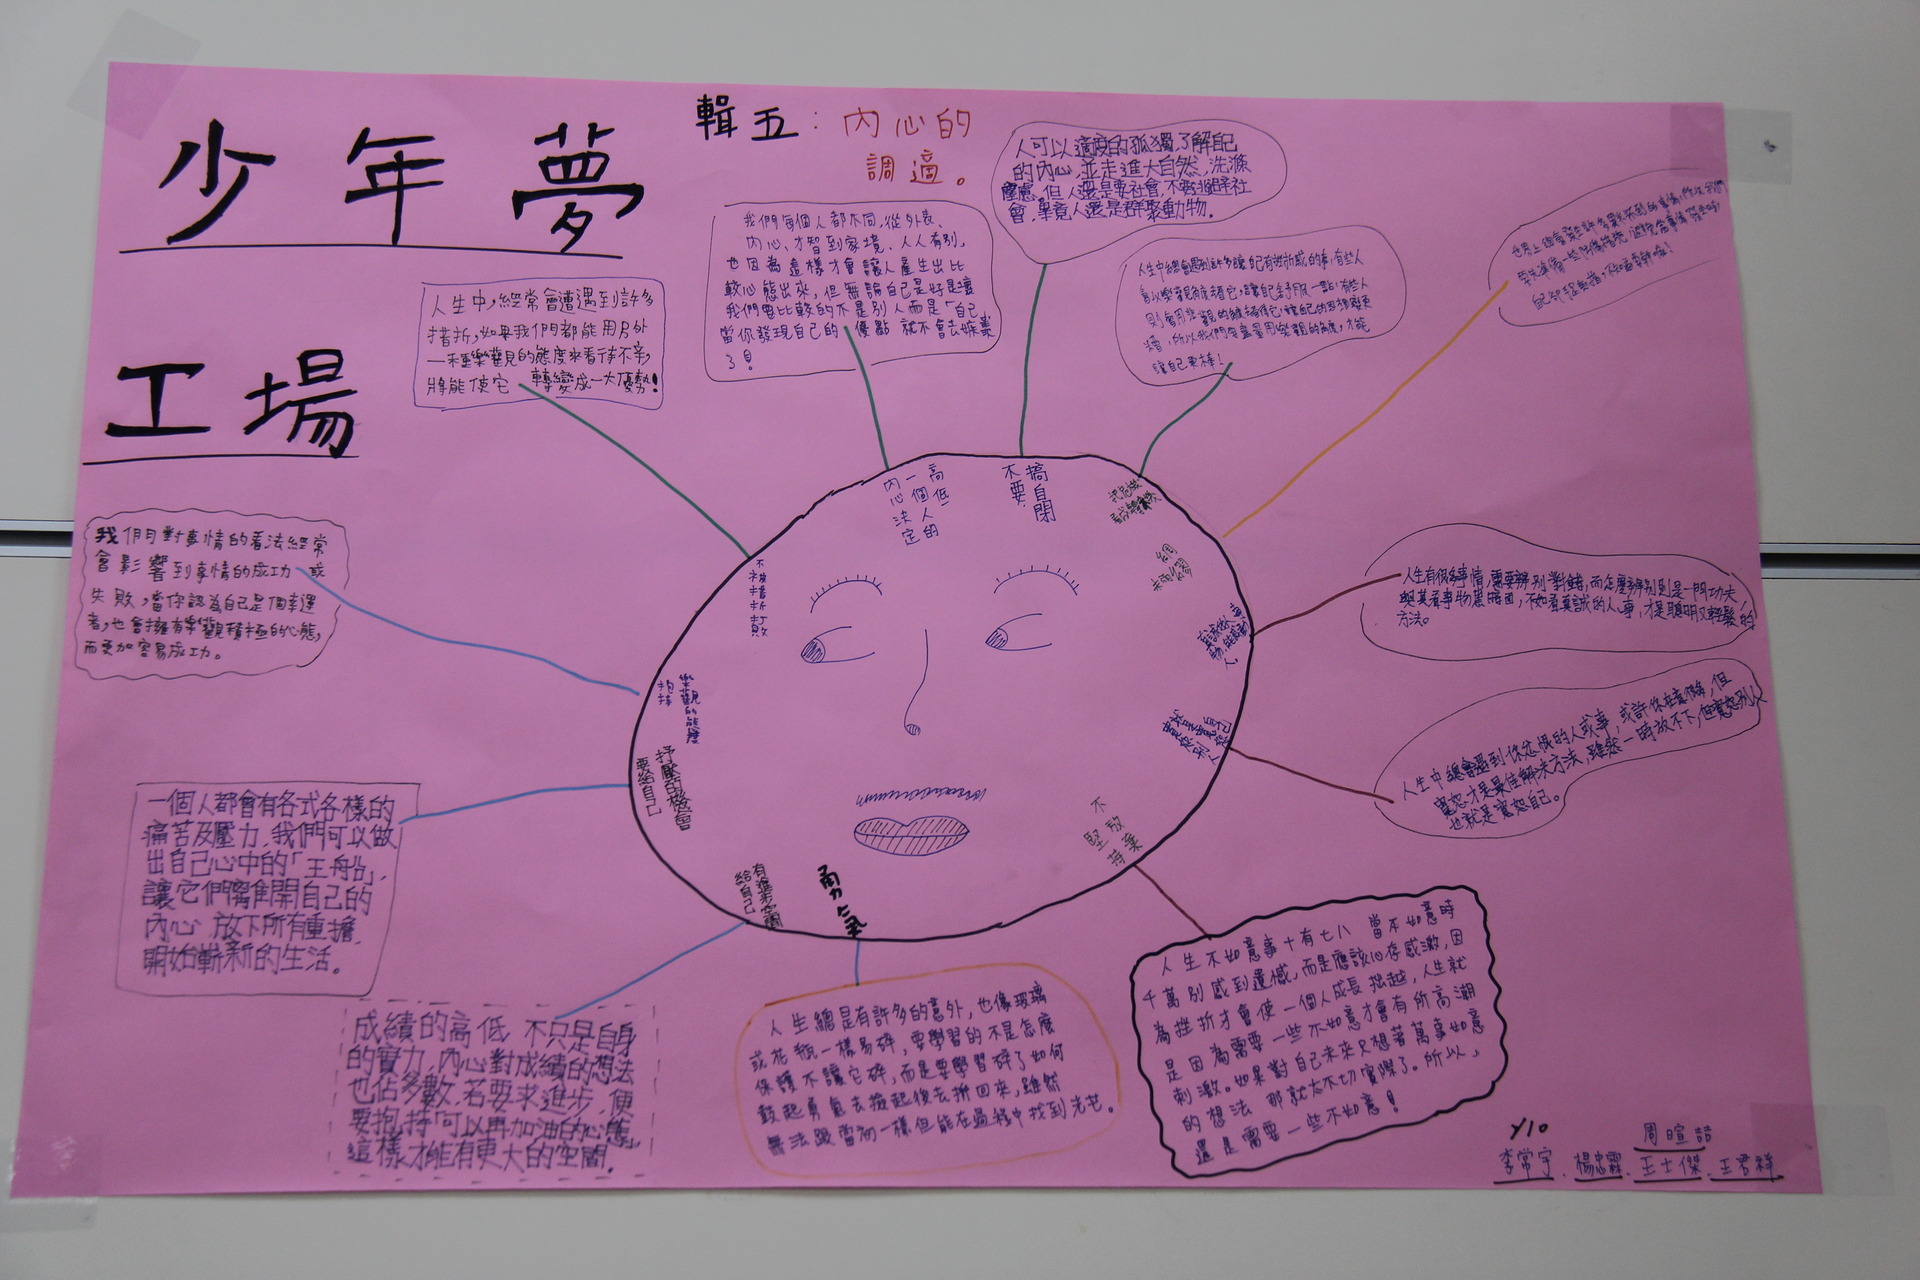 少年夢
工場
輯五：內心的
調適。
人可以適度的孤獨,了解自己
的內心,並走進大自然,洗滌
塵慮,但人還是要社會,不要脫離社
會,畢竟人還是群聚動物.
我們每個人都不同,從外表、
內心、才智到家境、人人有別,
也因為這樣才會讓人產生出比
較心態出來,但無論自己是好是壞
我們要比較的不是別人而是「自己」
當你發現自己的優點 就不會去嫉羨
了!
人生中,經常會遭遇到許多
挫折,如果我們都能用另外
一種樂觀的態度來看待不幸,
將能使它 轉變成一大優勢!
人生中總會遇到許多讓自己有挫折感的事,有些人
會以樂觀角度看待它,讓自己舒服一點,有些人
則會用悲觀的角度看待它,讓自己的思想變更
糟,所以我們要盡量用樂觀的角度,才能
讓自己更棒!
我們對事情的看法經常
會影響到事情的成功 或
失敗,當你認為自己是個幸運
者,也會擁有樂觀積極的心態,
而更加容易成功。
一個人都會有各式各樣的
痛苦及壓力,我們可以做
出自己心中的「王船」,
讓它們離開自己的
內心 放下所有重擔,
開始嶄新的生活。
成績的高低 不只是自身
的實力,內心對成績的想法
也佔多數,若要求進步,便
要抱持「可以再加油的心態」
這樣才能有更大的空間.
人生總是有許多的意外,也像玻璃
或花瓶一樣易碎,要學習的不是怎麼
保護不讓它碎,而是要學習碎了如何
鼓起勇氣去撿起後去拼回來,雖然
無法跟當初一樣但能在過程中找到光芒。
人生不如意事十有七八 當不如意時
千萬別感到遺憾,而是應該心存感激,因
為挫折才會使一個人成長 拙越,人生就
是因為需要一些不如意才會有所高潮
刺激。如果對自己未來只想著萬事如意
的想法 那就太不切實際了。所以,
還是需要一些不如意!
人生有很多事情需要辨別對錯,而怎麼辨別則是一門功夫,
與其看事物黑暗面,不如看真誠的人事,才是聰明又輕鬆的
方法。
人生中總會遇到你忿恨的人或事,或許你在意很多,但
寬恕才是最佳解決方法,雖然一時放不下,但寬恕別人
也就是寬恕自己。
高低
一個人的
內心決定
搞自閉
不要
不被挫折打敗
樂觀的態度
抱持
抒壓的機會
要給自己
有進步空間
給自己
勇氣
不放棄
堅持
Y10
周暄喆
李常宇.楊忠霖.王士傑.王君祥